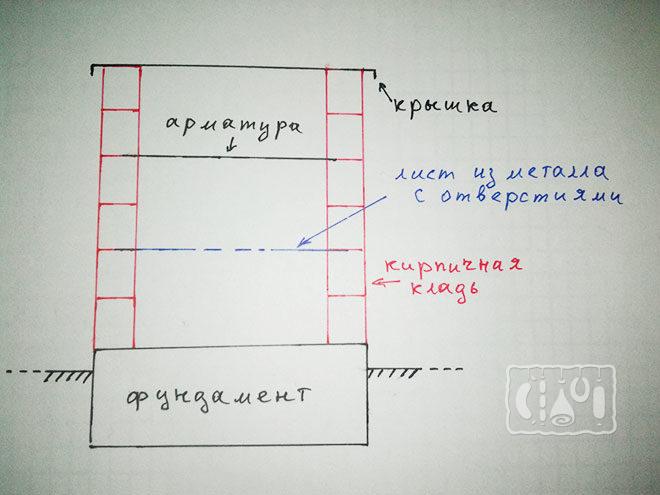 крышка
арматура
лист из металла
с отверстиями
кирпичная
кладь
фундамент